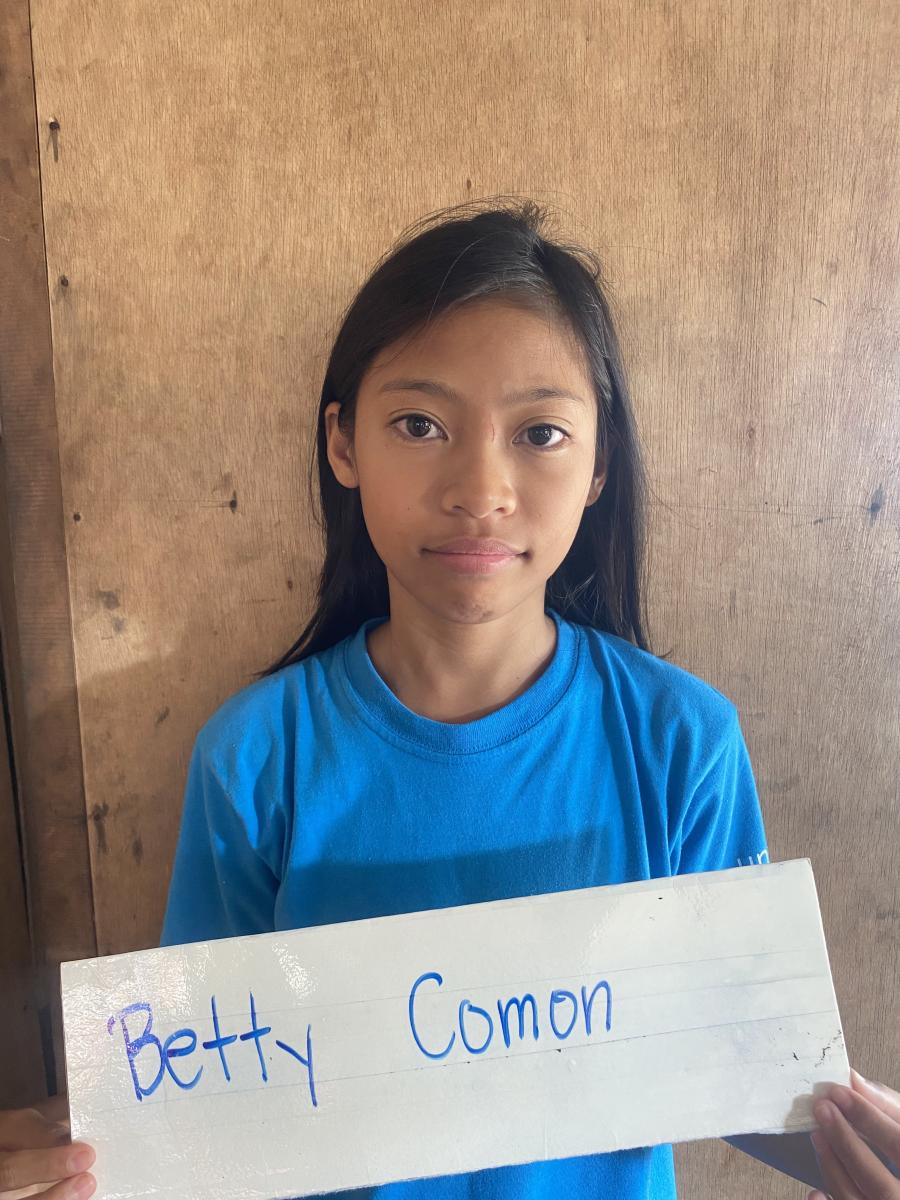 Betty Comon